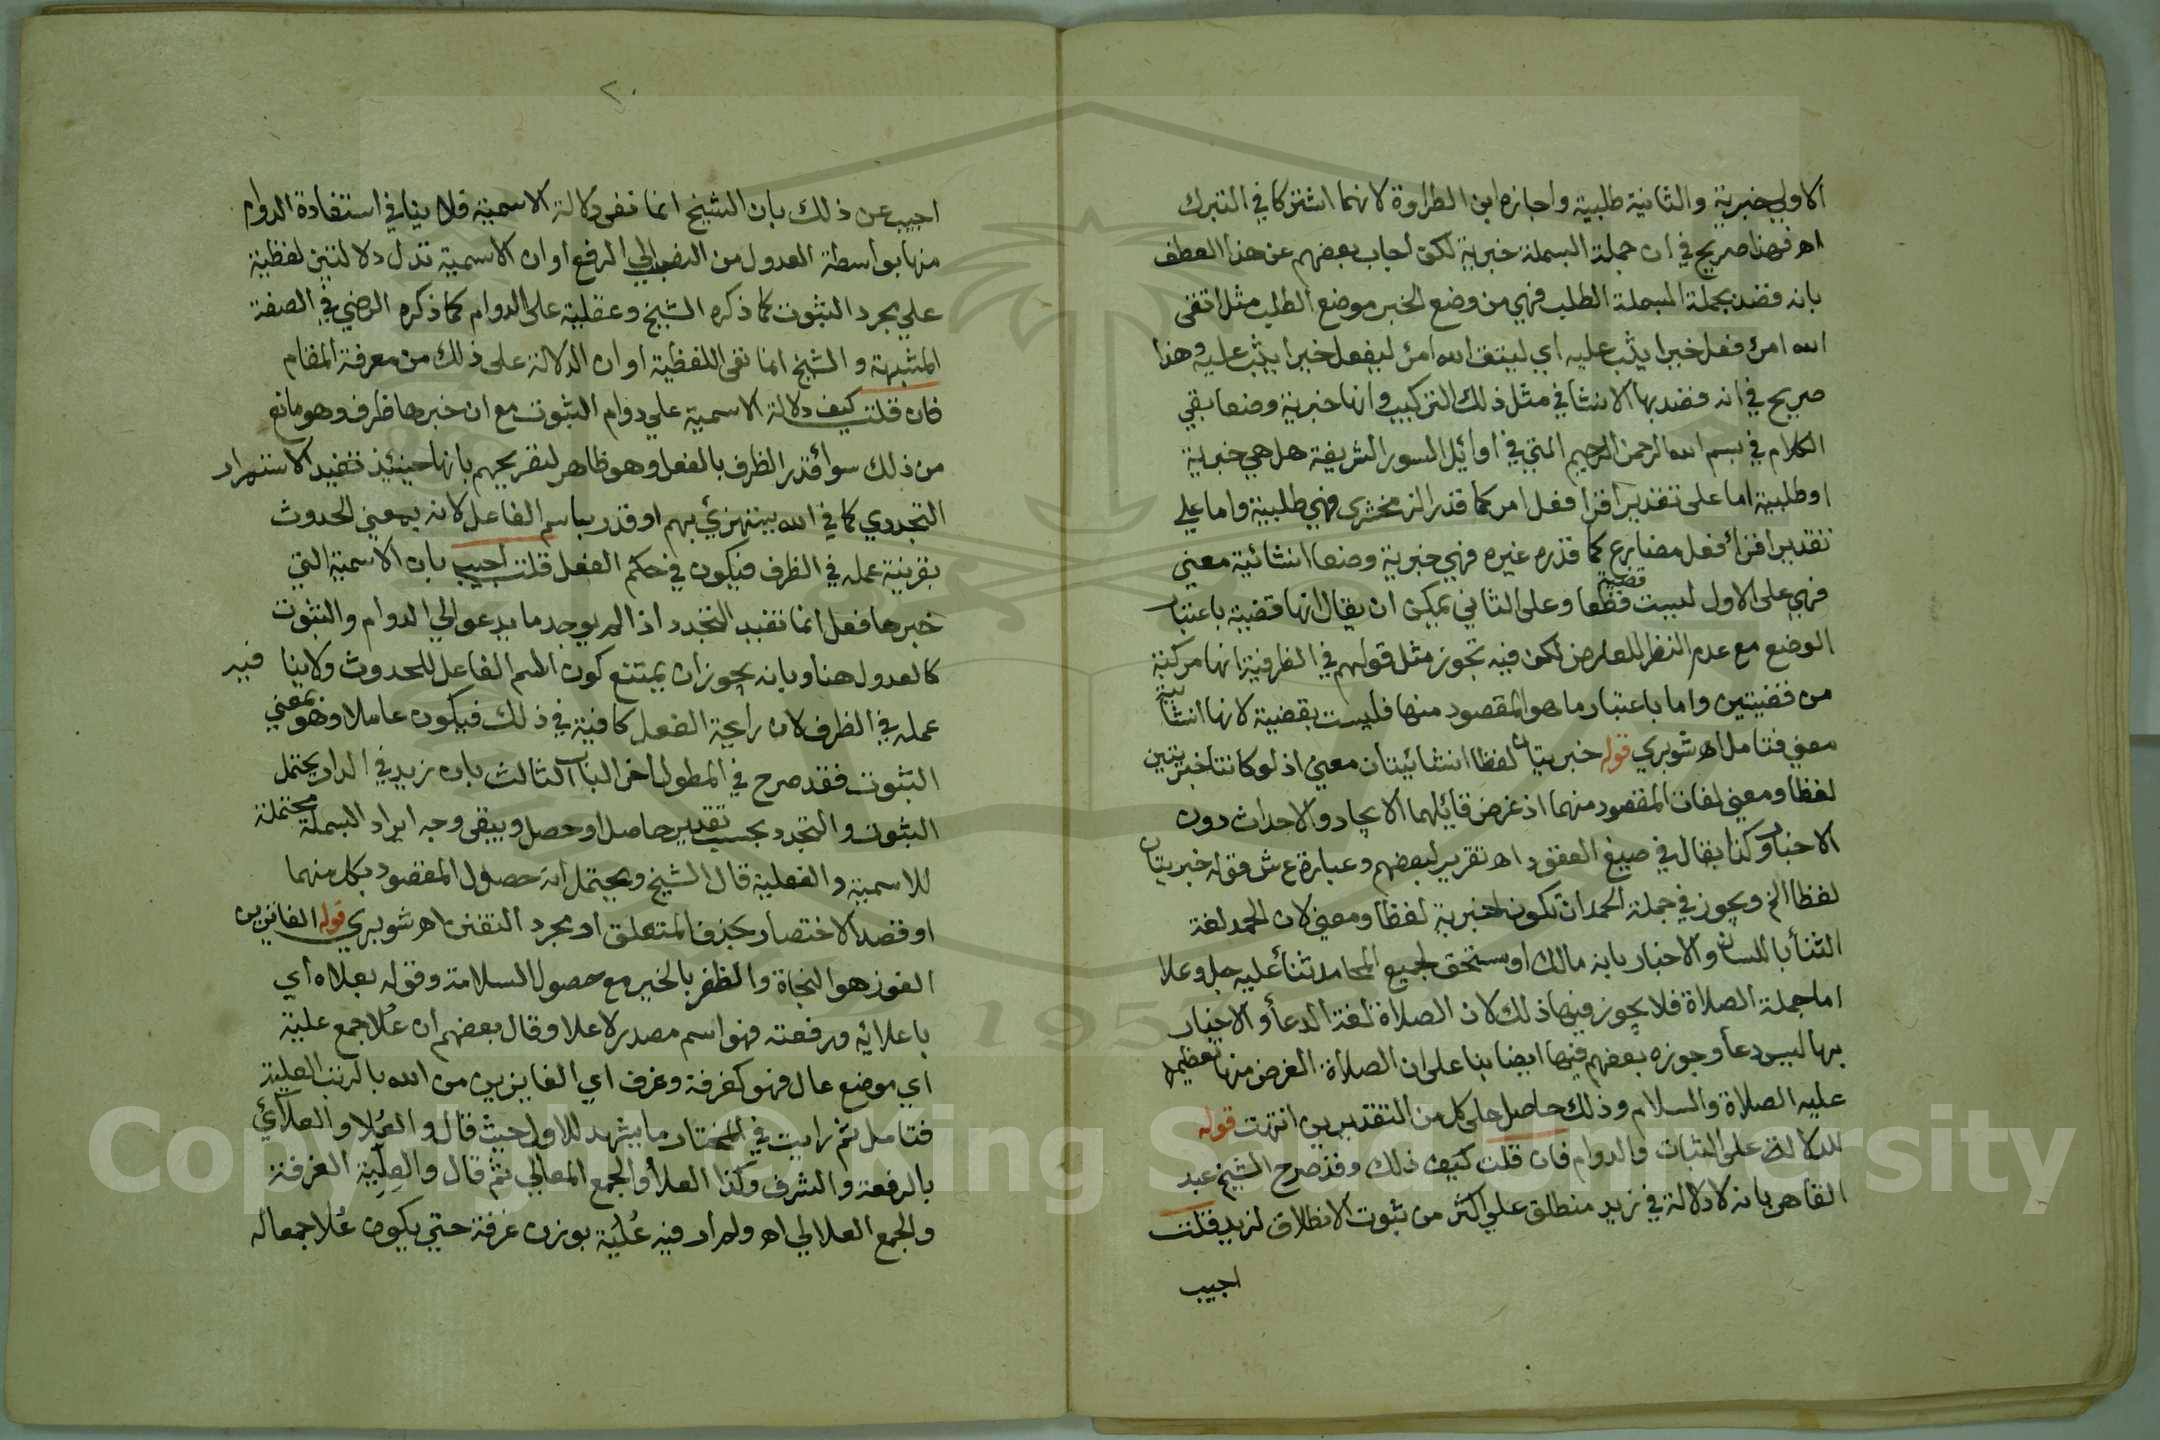 الاولي خبرية والثانية طلبية واجازه ابن الطراوة لانهما اشتركا في التبرك
اه فهذا صريح في ان جملة البسملة خبرية لكن اجاب بعضهم عن هذا العطف
بانه قصد بجملة البسملة الطلب فهي من وضع الخبر موضع الطلب مثل اتقى
الله امرئ فعل خيرا يثب عليه اي ليتق الله امرئ ليفعل خيرا يثب عليه وهذا
صريح في انه قصد بها الانشا في مثل ذلك التركيب وانها خبرية وضعا بقي
الكلام في بسم الله الرحمن الرحيم التي في اوائل السور الشريفة هل هي خبرية
او طلبية اما على تقدير اقرا فعل امر كما قدر الزمخشرى فهي طلبية واما علي
تقدير اقرأ فعل مضارع كما قدره غيره فهي خبرية وضعا انشائية معني
فهي على الاول ليست قضية قطعا وعلى الثاني يمكن ان يقال انها قضية باعتبار
الوضع مع عدم النظر للعارض لكن فيه تجوز مثل قولهم في الظرفية انها مركبة
من قضيتين واما باعتبار ما هو المقصود منها فليست بقضية لانها انشائية
معني فتامل اه شوبري قوله خبريتان لفظا انشائيتان معني اذ لو كانتا خبريتين
لفظا ومعني لفات المقصود منهما اذ غرض قائلهما الايجاد والاحداث دون
الاخبار وكذا يقال في صيغ العقود اه تقرير لبعضهم وعبارة ع ش قوله خبريتان
لفظا الخ ويجوز في جملة الحمد ان تكون خبرية لفظا ومعني لان الحمد لغة
الثنأ باللسان والاخبار بانه مالك او مستحق لجميع المحامد ثنأ عليه جل وعلا
اما جملة الصلاة فلا يجوز فيها ذلك لان الصلاة لغة الدعأ والاخبار
بها ليس دعأ وجوزه بعضهم فيها ايضا بنا على ان الصلاة الغرض منها تعظيمه
عليه الصلاة والسلام وذلك حاصل على كل من التقديرين انتهت قوله
للدلالة على الثبات والدوام فان قلت كيف ذلك وقد صرح الشيخ عبد
القاهر بانه لا دلالة في زيد منطلق علي اكثر من ثبوت الانطلاق لزيد قلت
اجيب
٢٠
اجيب عن ذلك بان الشيخ انما نفى دلالة الاسمية فلا ينافي استفادة الدوام
منها بواسطة العدول من النصب الي الرفع او ان الاسمية تدل دلالتين لفظية
علي مجرد الثبوت كما ذكره الشيخ وعقلية على الدوام كما ذكره الرضي في الصفة
المشبهة والشيخ انما نفى اللفظية او ان الدلالة على ذلك من معرفة المقام
فان قلت كيف دلالة الاسمية علي دوام الثبوت مع ان خبرها ظرف وهو مانع
من ذلك سوأ قدر الظرف بالفعل وهو ظاهر لتصريحهم بانها حينئذ تفيد الاستمرار
التجددي كما في الله يستهزئ بهم او قدر باسم الفاعل لانه بمعني الحدوث
بقرينة عمله في الظرف فيكون في حكم الفعل قلت اجيب بان الاسمية التي
خبرها فعل انما تفيد التجدد اذا لم يوجد ما يدعو الي الدوام والثبوت
كالعدول هنا وبانه يجوز ان يمتنع كون اسم الفاعل للحدوث ولا ينا فيه
عمله في الظرف لان رايحة الفعل كافية في ذلك فيكون عاملا وهو بمعني
الثبوت فقد صرح في المطول اخر الباب الثالث بان زيد في الدار يحتمل
الثبوت والتجدد بحسب تقدير حاصل او حصل ويبقى وجه ايراد البسملة محتملة
للاسمية والفعلية قال الشيخ ويحتمل انه حصول المقصود بكل منهما
او قصد الاختصار بحذف المتعلق او مجرد التفنن اه شوبري قوله الفائزين
الفوز هو النجاة والظفر بالخير مع حصول السلامة وقوله بعلاه اي
باعلائه ورفعته فهو اسم مصدر لاعلا وقال بعضهم ان عُلا جمع علية
اي موضع عال فهو كغرفة وغرف اي الفايزين من الله بالرتب العلية
فتامل ثم رايت في المختار ما يشهد للاول حيث قال والعُلا والعلائي
بالرفعة والشرف وكذا العلأ والجمع المعالي ثم قال والعِلِّية الغرفة
والجمع العلالي اه ولم ار فيه عُلْية بوزن غرفة حتي يكون عُلا جمعا له